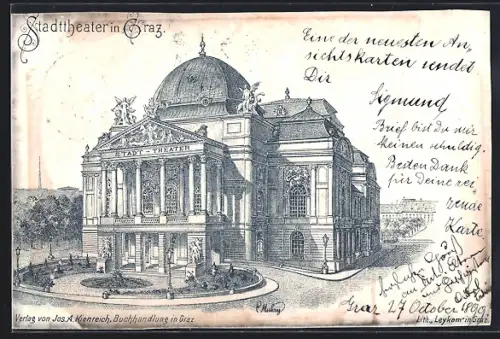 Stadttheater in Graz.
Eine der neuesten An-
sichtskarten sendet
Dir
Sigmund
Brief bist Du mir
keinen schuldig.
Besten Dank
für Deine rei-
zende
Karte
STADT-THEATER
Graz 27 October 1899
Verlag von Jos. A. Kienreich, Buchhandlung in Graz
Lith. Leykam in Graz.